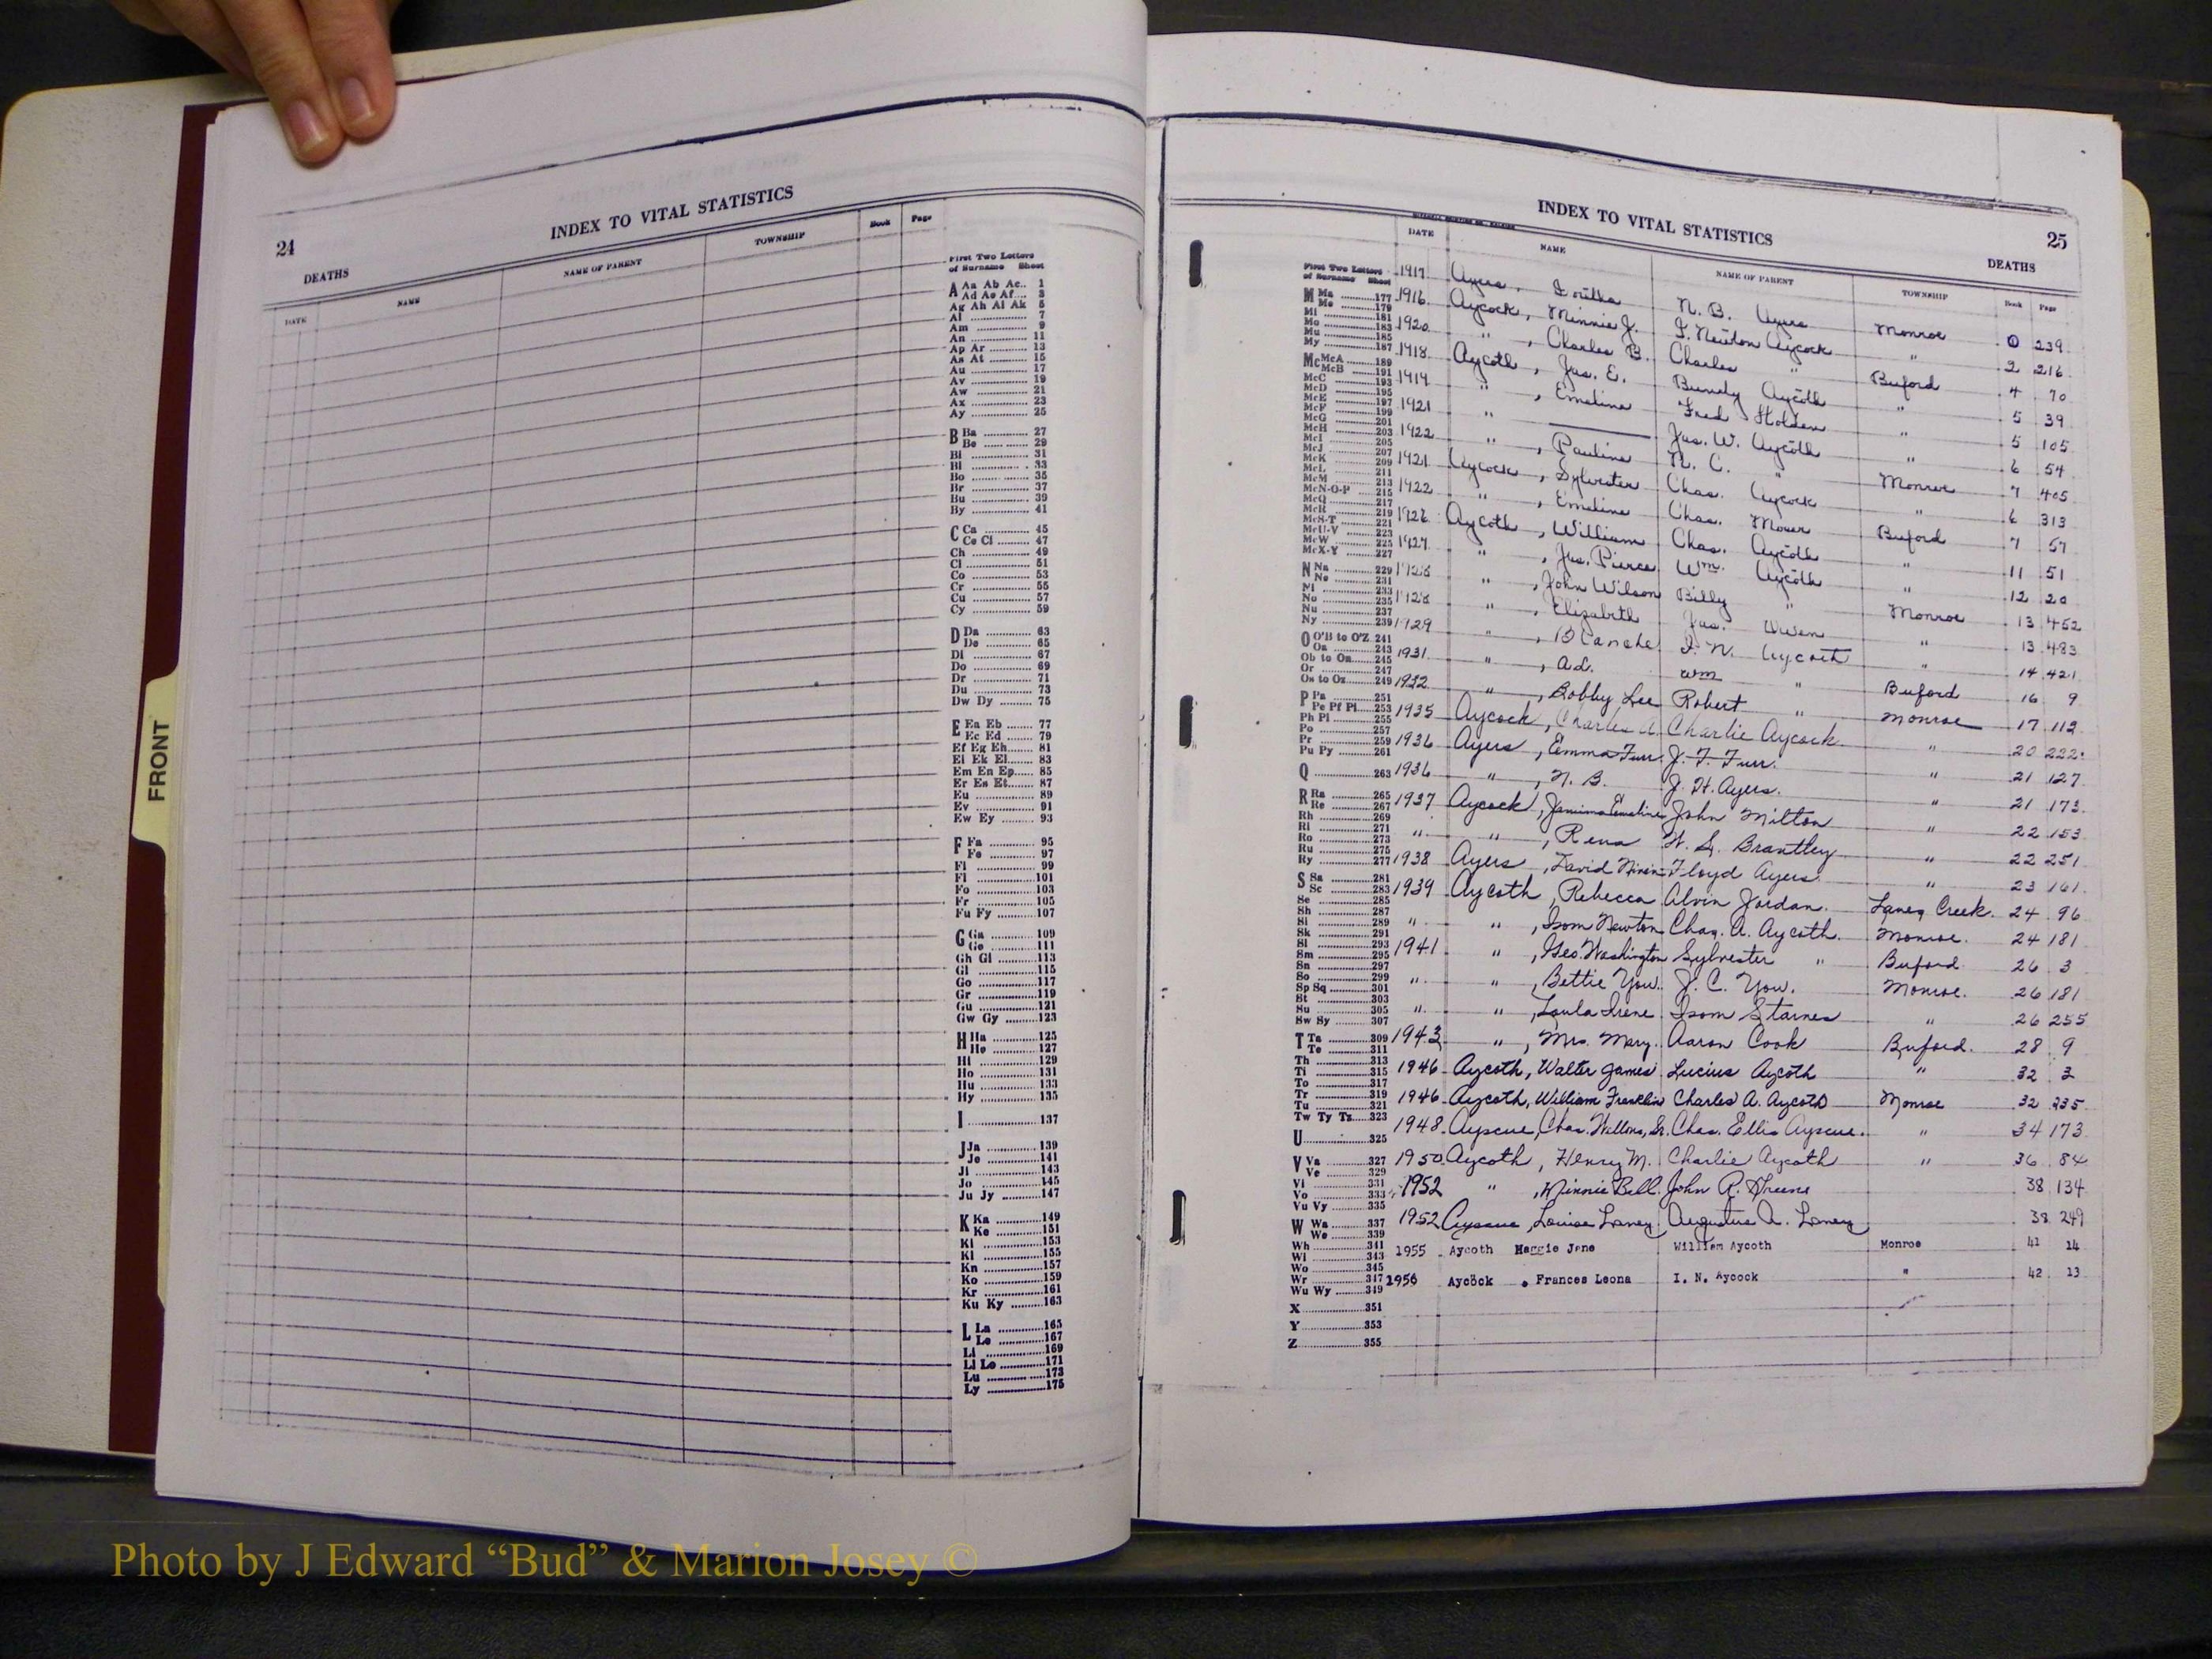 FRONT
24
INDEX TO VITAL STATISTICS
DEATHS
DATE NAME NAME OF PARENT TOWNSHIP Book Page
First Two Letters
of Surname Sheet
A Aa Ab Ac.. 1
Ad Ae Af.... 3
Ag Ah Ai Ak 5
Al ............ 7
Am ............ 9
An ............ 11
Ap Ar ......... 13
As At ......... 15
Au ............ 17
Av ............ 19
Aw ............ 21
Ax ............ 23
Ay ............ 25
B Ba ............ 27
Be ............ 29
Bi ............ 31
Bl ............ 33
Bo ............ 35
Br ............ 37
Bu ............ 39
By ............ 41
C Ca ............ 45
Ce Ci ......... 47
Ch ............ 49
Cl ............ 51
Co ............ 53
Cr ............ 55
Cu ............ 57
Cy ............ 59
D Da ............ 63
De ............ 65
Di ............ 67
Do ............ 69
Dr ............ 71
Du ............ 73
Dw Dy ......... 75
E Ea Eb ....... 77
Ec Ed ....... 79
Ef Eg Eh....... 81
Ei Ek El....... 83
Em En Ep..... 85
Er Es Et....... 87
Eu ............ 89
Ev ............ 91
Ew Ey ......... 93
F Fa ............ 95
Fe ............ 97
Fi ............ 99
Fl ............101
Fo ............103
Fr ............105
Fu Fy .........107
G Ga ............109
Ge ............111
Gh Gi .........113
Gl ............115
Go ............117
Gr ............119
Gu ............121
Gw Gy ........123
H Ha ............125
He ............127
Hi ............129
Ho ............131
Hu ............133
Hy ............135
I ............137
J Ja ............139
Je ............141
Ji ............143
Jo ............145
Ju Jy .........147
K Ka ............149
Ke ............151
Ki ............153
Kl ............155
Kn ............157
Ko ............159
Kr ............161
Ku Ky .........163
L La ............165
Le ............167
Li ............169
Ll Lo .........171
Lu ............173
Ly ............175
INDEX TO VITAL STATISTICS
25
DEATHS
DATE NAME NAME OF PARENT TOWNSHIP Book Page
First Two Letters
of Surname Sheet
M Ma ..........177
Me ..........179
Mi ..........181
Mo ..........183
Mu ..........185
My ..........187
Mc McA ........189
McB ........191
McC ..........193
McD ..........195
McE ..........197
McF ..........199
McG ..........201
McH ..........203
McI ..........205
McJ ..........207
McK ..........209
McL ..........211
McM ..........213
McN-O-P .....215
McQ ..........217
McR ..........219
McS-T ........221
McU-V ........223
McW ..........225
McX-Y ........227
N Na ..........229
Ne ..........231
Ni ..........233
No ..........235
Nu ..........237
Ny ..........239
O O'B to O'Z. 241
Oa ..........243
Ob to On......245
Or ..........247
Os to Oz......249
P Pa ..........251
Pe Pf Pi....253
Ph Pl ........255
Po ..........257
Pr ..........259
Pu Py ........261
Q ..........263
R Ra ..........265
Re ..........267
Rh ..........269
Ri ..........271
Ro ..........273
Ru ..........275
Ry ..........277
S Sa ..........281
Sc ..........283
Se ..........285
Sh ..........287
Si ..........289
Sk ..........291
Sl ..........293
Sm ..........295
Sn ..........297
So ..........299
Sp Sq ........301
St ..........303
Su ..........305
Sw Sy ........307
T Ta ..........309
Te ..........311
Th ..........313
Ti ..........315
To ..........317
Tr ..........319
Tu ..........321
Tw Ty Tz....323
U ..........325
V Va ..........327
Ve ..........329
Vi ..........331
Vo ..........333
Vu Vy ........335
W Wa ..........337
We ..........339
Wh ..........341
Wi ..........343
Wo ..........345
Wr ..........347
Wu Wy ........349
X ..........351
Y ..........353
Z ..........355
1917 Ayers, N. B. Ayers Monroe 239
1916 Aycock, Minnie J. I. Newton Aycock " 2 216
1920 " , Charles B. Charles " Buford 4 70
1918 Aycoth, Jas. E. Bundy Aycoth " 5 39
1919 " , Emeline Fred Holden " 5 105
1921 " ——— Jas. W. Aycoth " 6 54
1922 " , Pauline R. C. " Monroe 7 405
1921 Aycock, Sylvester Chas. Aycock " 6 313
1922 " , Emeline Chas. Buford 7 57
1926 Aycoth, William Chas. Aycoth " 11 51
1927 " , Jas. Pierce Wm. Aycoth " 12 20
1928 " , John Wilson Billy " Monroe 13 452
1928 " , Elizabeth Jas. " 13 483
1929 " , Blanche I. N. Aycoth " 14 421
1931 " , Ad. Wm " Buford 16 9
1932 " , Bobby Lee Robert " Monroe 17 112
1935 Aycock, Charles A. Charlie Aycock " 20 222
1936 Ayers, Emma Furr J. F. Furr. " 21 127
1936 " , N. B. J. H. Ayers. " 21 173
1937 Aycock, Jemima Emeline John Milton " 22 153
" " , Rena W. S. Brantley " 22 251
1938 Ayers, David Floyd Ayers. " 23 161
1939 Aycoth, Rebecca Alvin Jordan. Laney Creek. 24 96
" " , Isom Newton Chas. A. Aycoth. Monroe. 24 181
1941 " , Geo. Washington Sylvester " Buford 26 3
" " , Bettie Yow. J. C. Yow. Monroe. 26 181
" " , Laula Irene Isom Starnes " 26 255
1943 " , Mrs. Mary. Aaron Cook Buford. 28 9
1946 Aycoth, Walter James Lucius Aycoth " 32 3
1946 Aycoth, William Franklin Charles A. Aycoth Monroe 32 235
1948 Ayscue, Chas. Wellons, Sr. Chas. Ellis Ayscue. " 34 173
1950 Aycoth, Henry M. Charlie Aycoth " 36 84
1952 " , Minnie Bell. John R. Greene 38 134
1952 Ayscue, Louise Laney Augustus A. Laney 38 249
1955 Aycoth Maggie Jane William Aycoth Monroe 41 14
1956 Aycock , Frances Leona I. N. Aycock " 42 13
Photo by J Edward “Bud” & Marion Josey ©